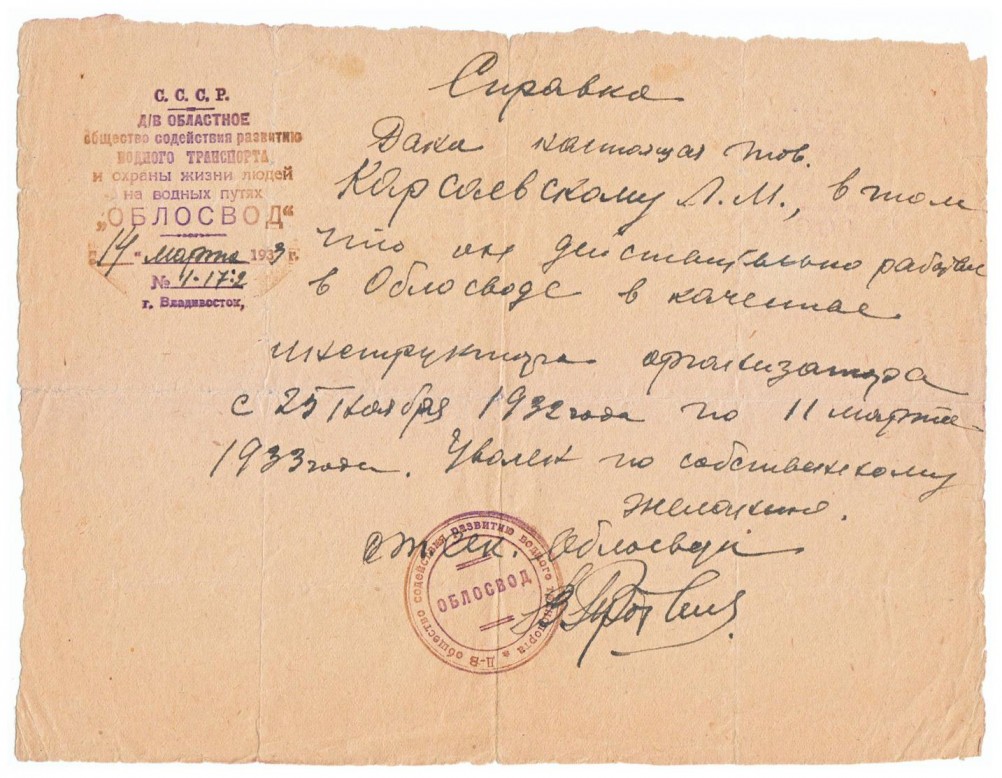 С. С. С. Р.
Д/В ОБЛАСТНОЕ
общество содействия развитию
ВОДНОГО ТРАНСПОРТА
и охраны жизни людей
на водных путях
„ОБЛОСВОД“
„14" марта 1933 г.
№ 4-17-2
г. Владивосток,
Справка
Дана настоящая тов.
Карсаевскому Л.М., в том
что он действительно работал
в Облосводе в качестве
инструктора организатора
с 25 ноября 1932 года по 11 марта
1933 года. Уволен по собственному
желанию.
От. сек. Облосвода
Д-В общество содействия развитию водного транспорта
ОБЛОСВОД